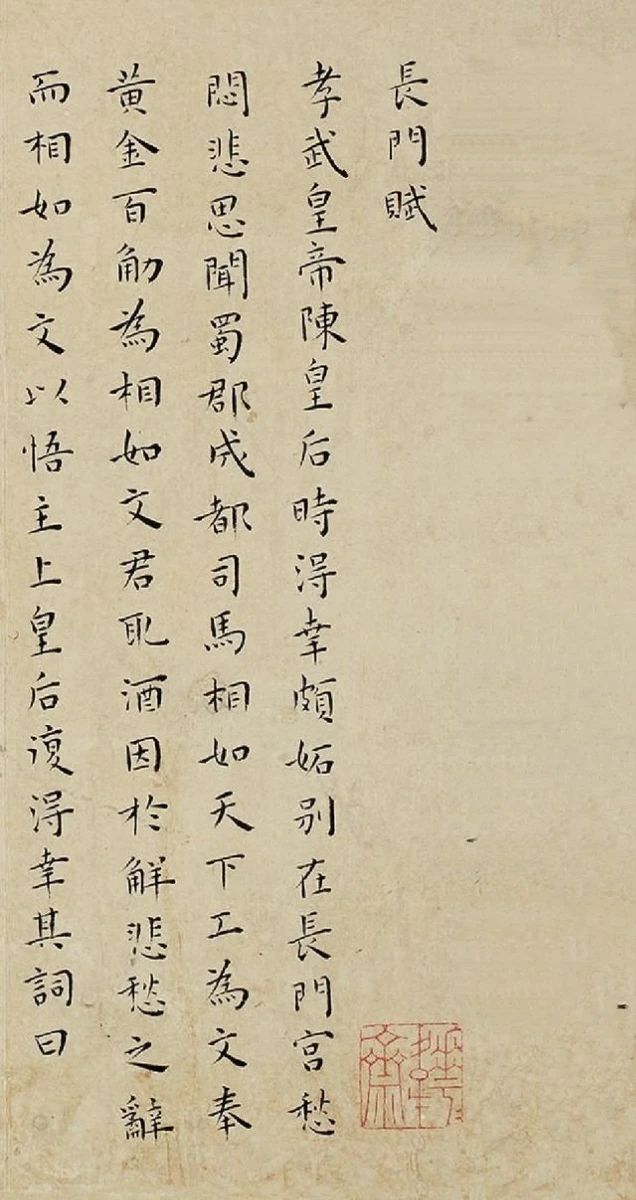 長門賦
孝武皇帝陳皇后時得幸頗妬别在長門宮愁
悶悲思聞蜀郡成都司馬相如天下工為文奉
黄金百觔為相如文君取酒因於解悲愁之辭
而相如為文以悟主上皇后復得幸其詞曰